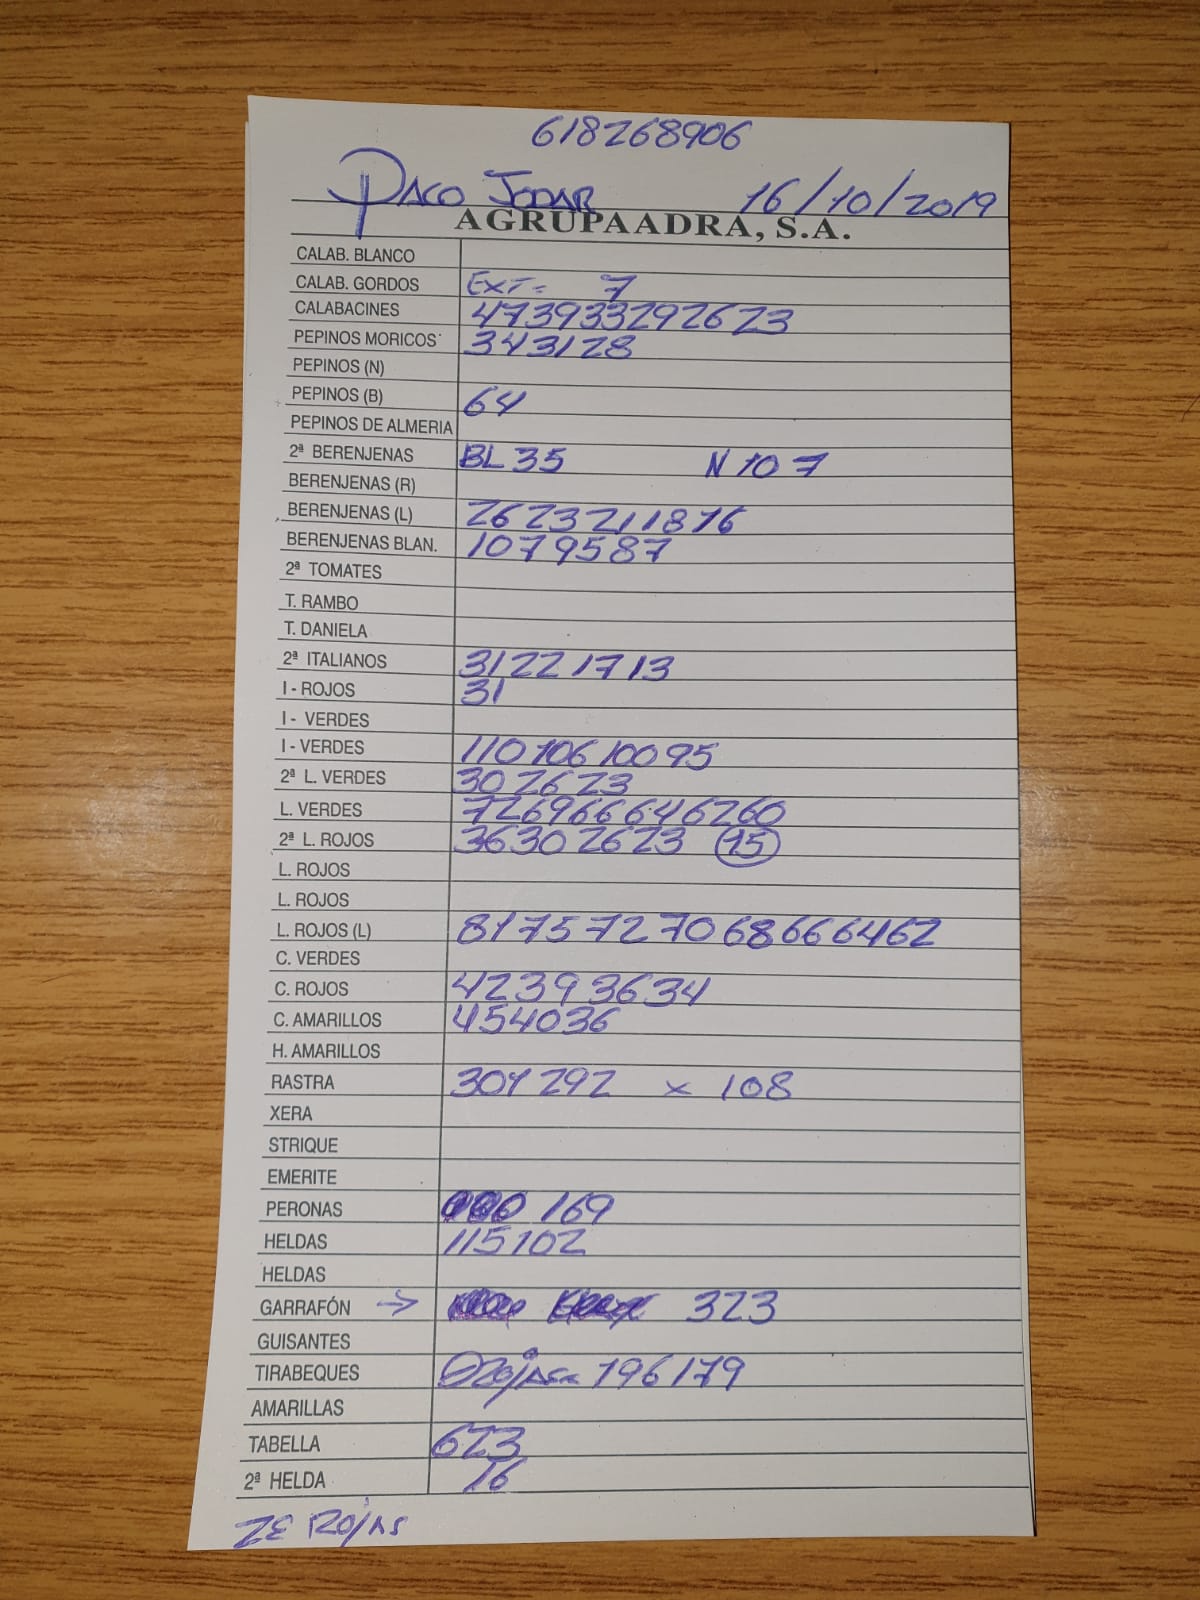 618268906
PACO JODAR 16/10/2019
AGRUPAADRA, S.A.
CALAB. BLANCO
CALAB. GORDOS EXT- 7
CALABACINES 4739333292623
PEPINOS MORICOS 343128
PEPINOS (N)
PEPINOS (B) 64
PEPINOS DE ALMERIA
2ª BERENJENAS BL 35 N 107
BERENJENAS (R)
BERENJENAS (L) 2623211816
BERENJENAS BLAN. 1079587
2ª TOMATES
T. RAMBO
T. DANIELA
2ª ITALIANOS 31221713
I - ROJOS 31
I - VERDES
I - VERDES 11010610095
2ª L. VERDES 302623
L. VERDES 726966646260
2ª L. ROJOS 36302623 (15)
L. ROJOS
L. ROJOS
L. ROJOS (L) 8175727068666462
C. VERDES
C. ROJOS 42393634
C. AMARILLOS 454036
H. AMARILLOS
RASTRA 301292 x 108
XERA
STRIQUE
EMERITE
PERONAS 169
HELDAS 115102
HELDAS
GARRAFÓN → 323
GUISANTES
TIRABEQUES 196179
AMARILLAS
TABELLA 623
2ª HELDA 16
ZE ROJAS